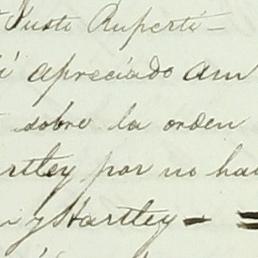 Justi Ruperti -
apreciado am
sobre la orden
rtley por no ha
i y Hartley -